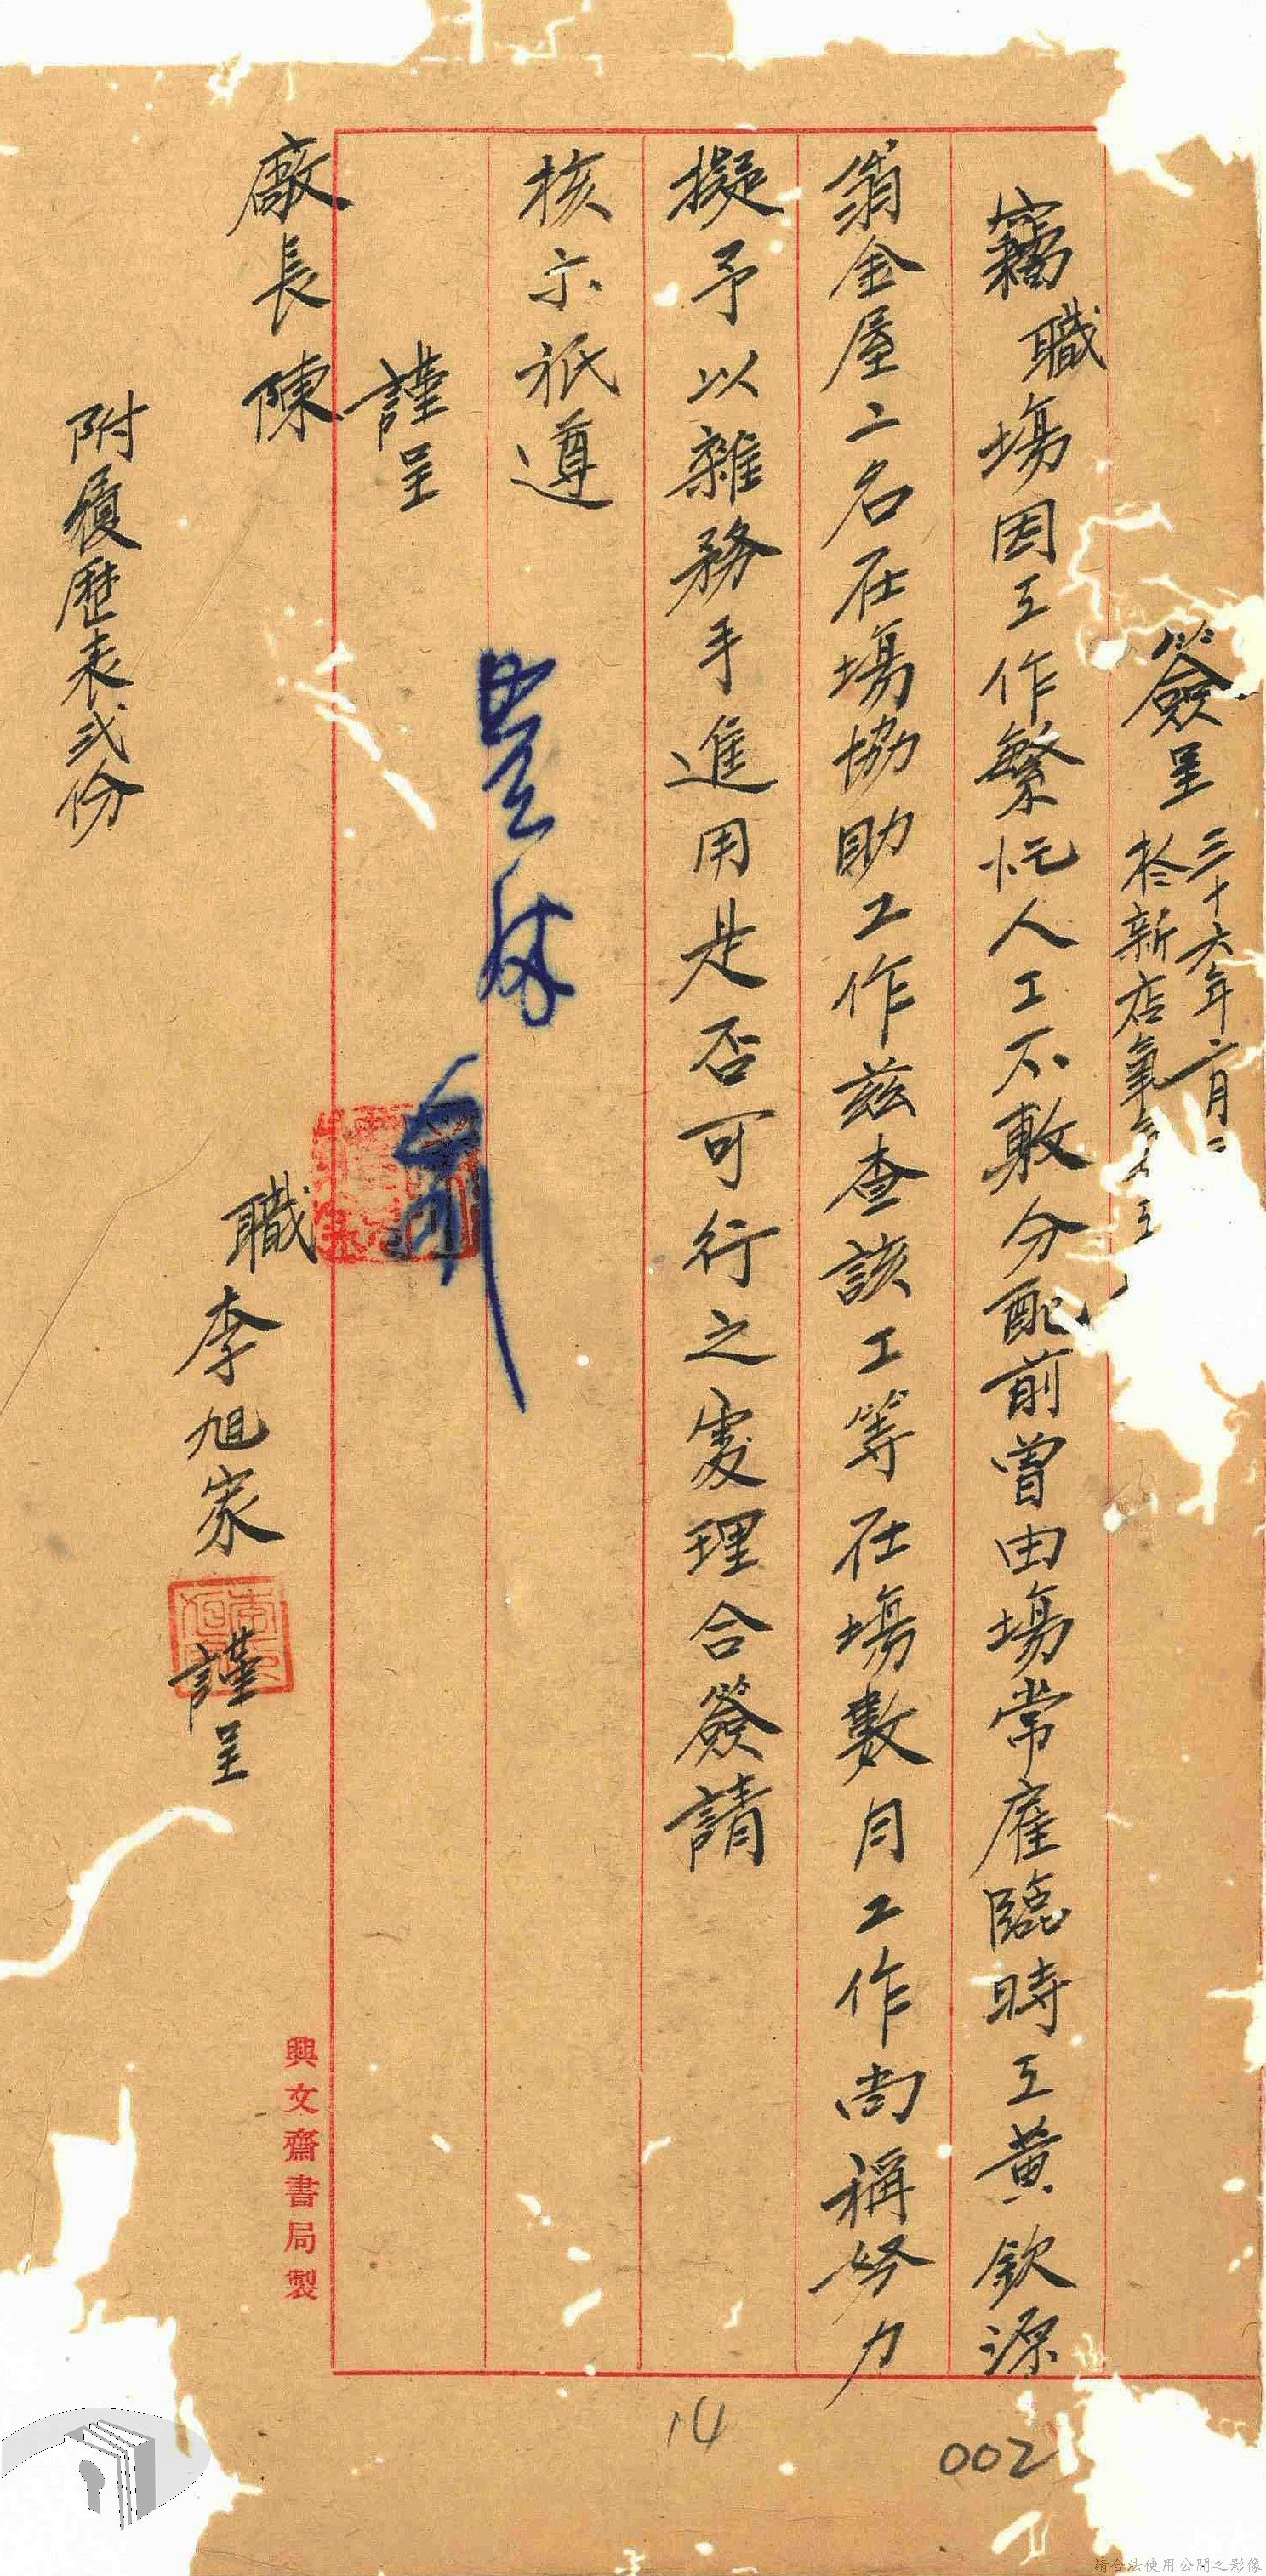 簽呈 三十六年二月二
於新店氧氣
竊職場因工作繁忙人工不敷分配前曾由場常雇臨時工黃欽源
翁金屋二名在場協助工作茲查該工等在場數月工作尚稱努力
擬予以雜務手進用是否可行之處理合簽請
核示祇遵
謹呈
廠長陳
職李旭家謹呈
附履歷表弍份
興文齋書局製
14
002
請合法使用公開之影像